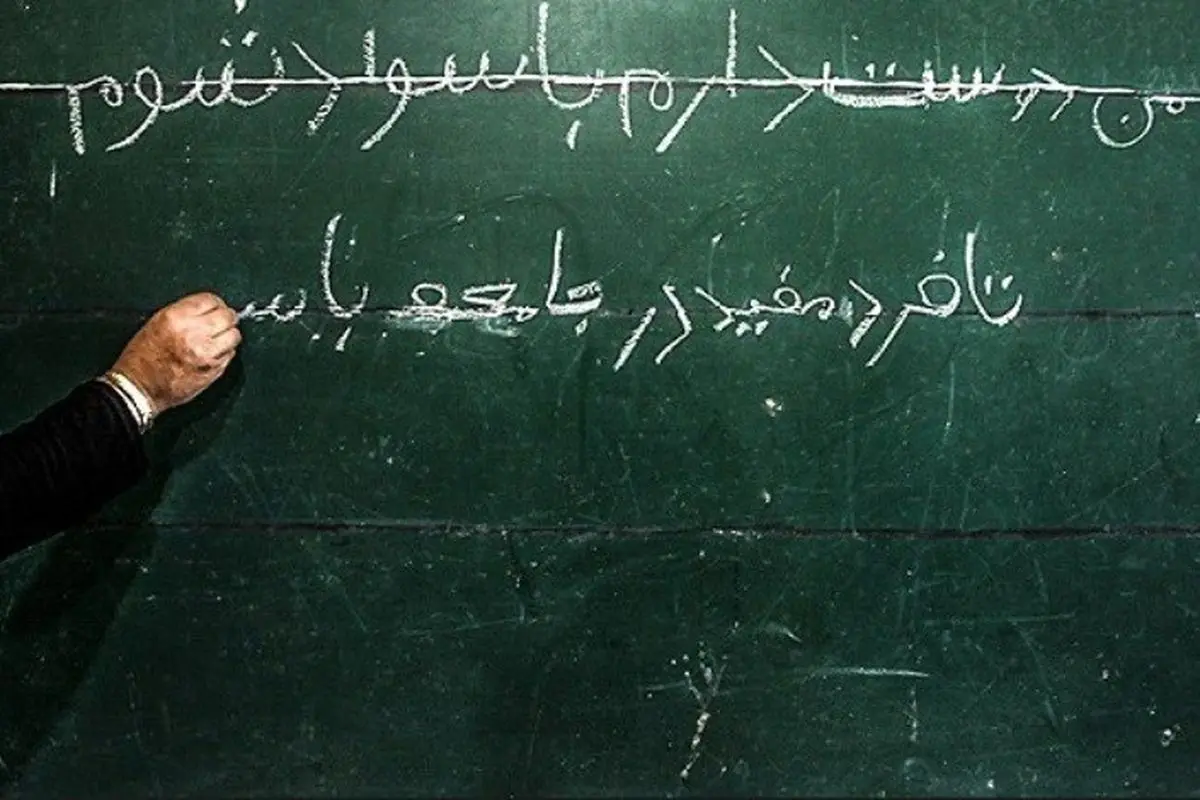 من دوست دارم با سواد شوم
تا فرد مفیدی در جامعه با